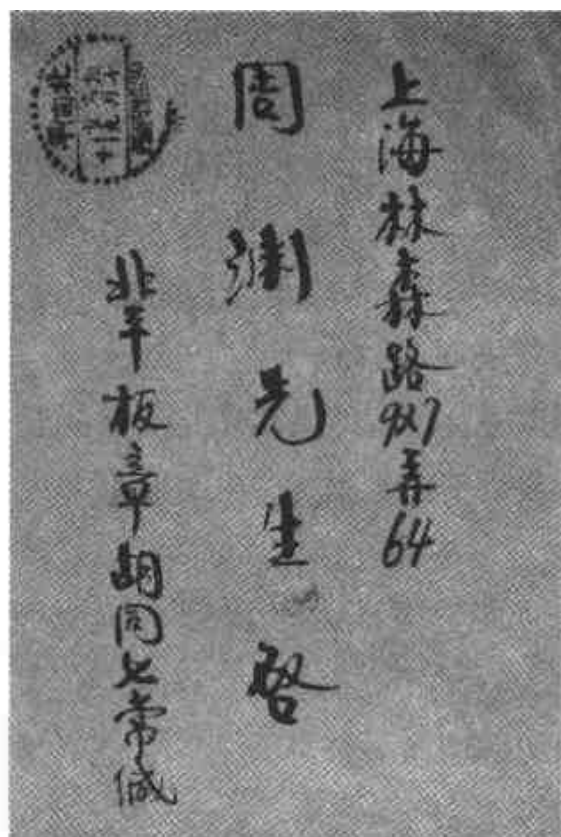 上海林森路927弄64
周渊先生启
北平板章胡同七常缄